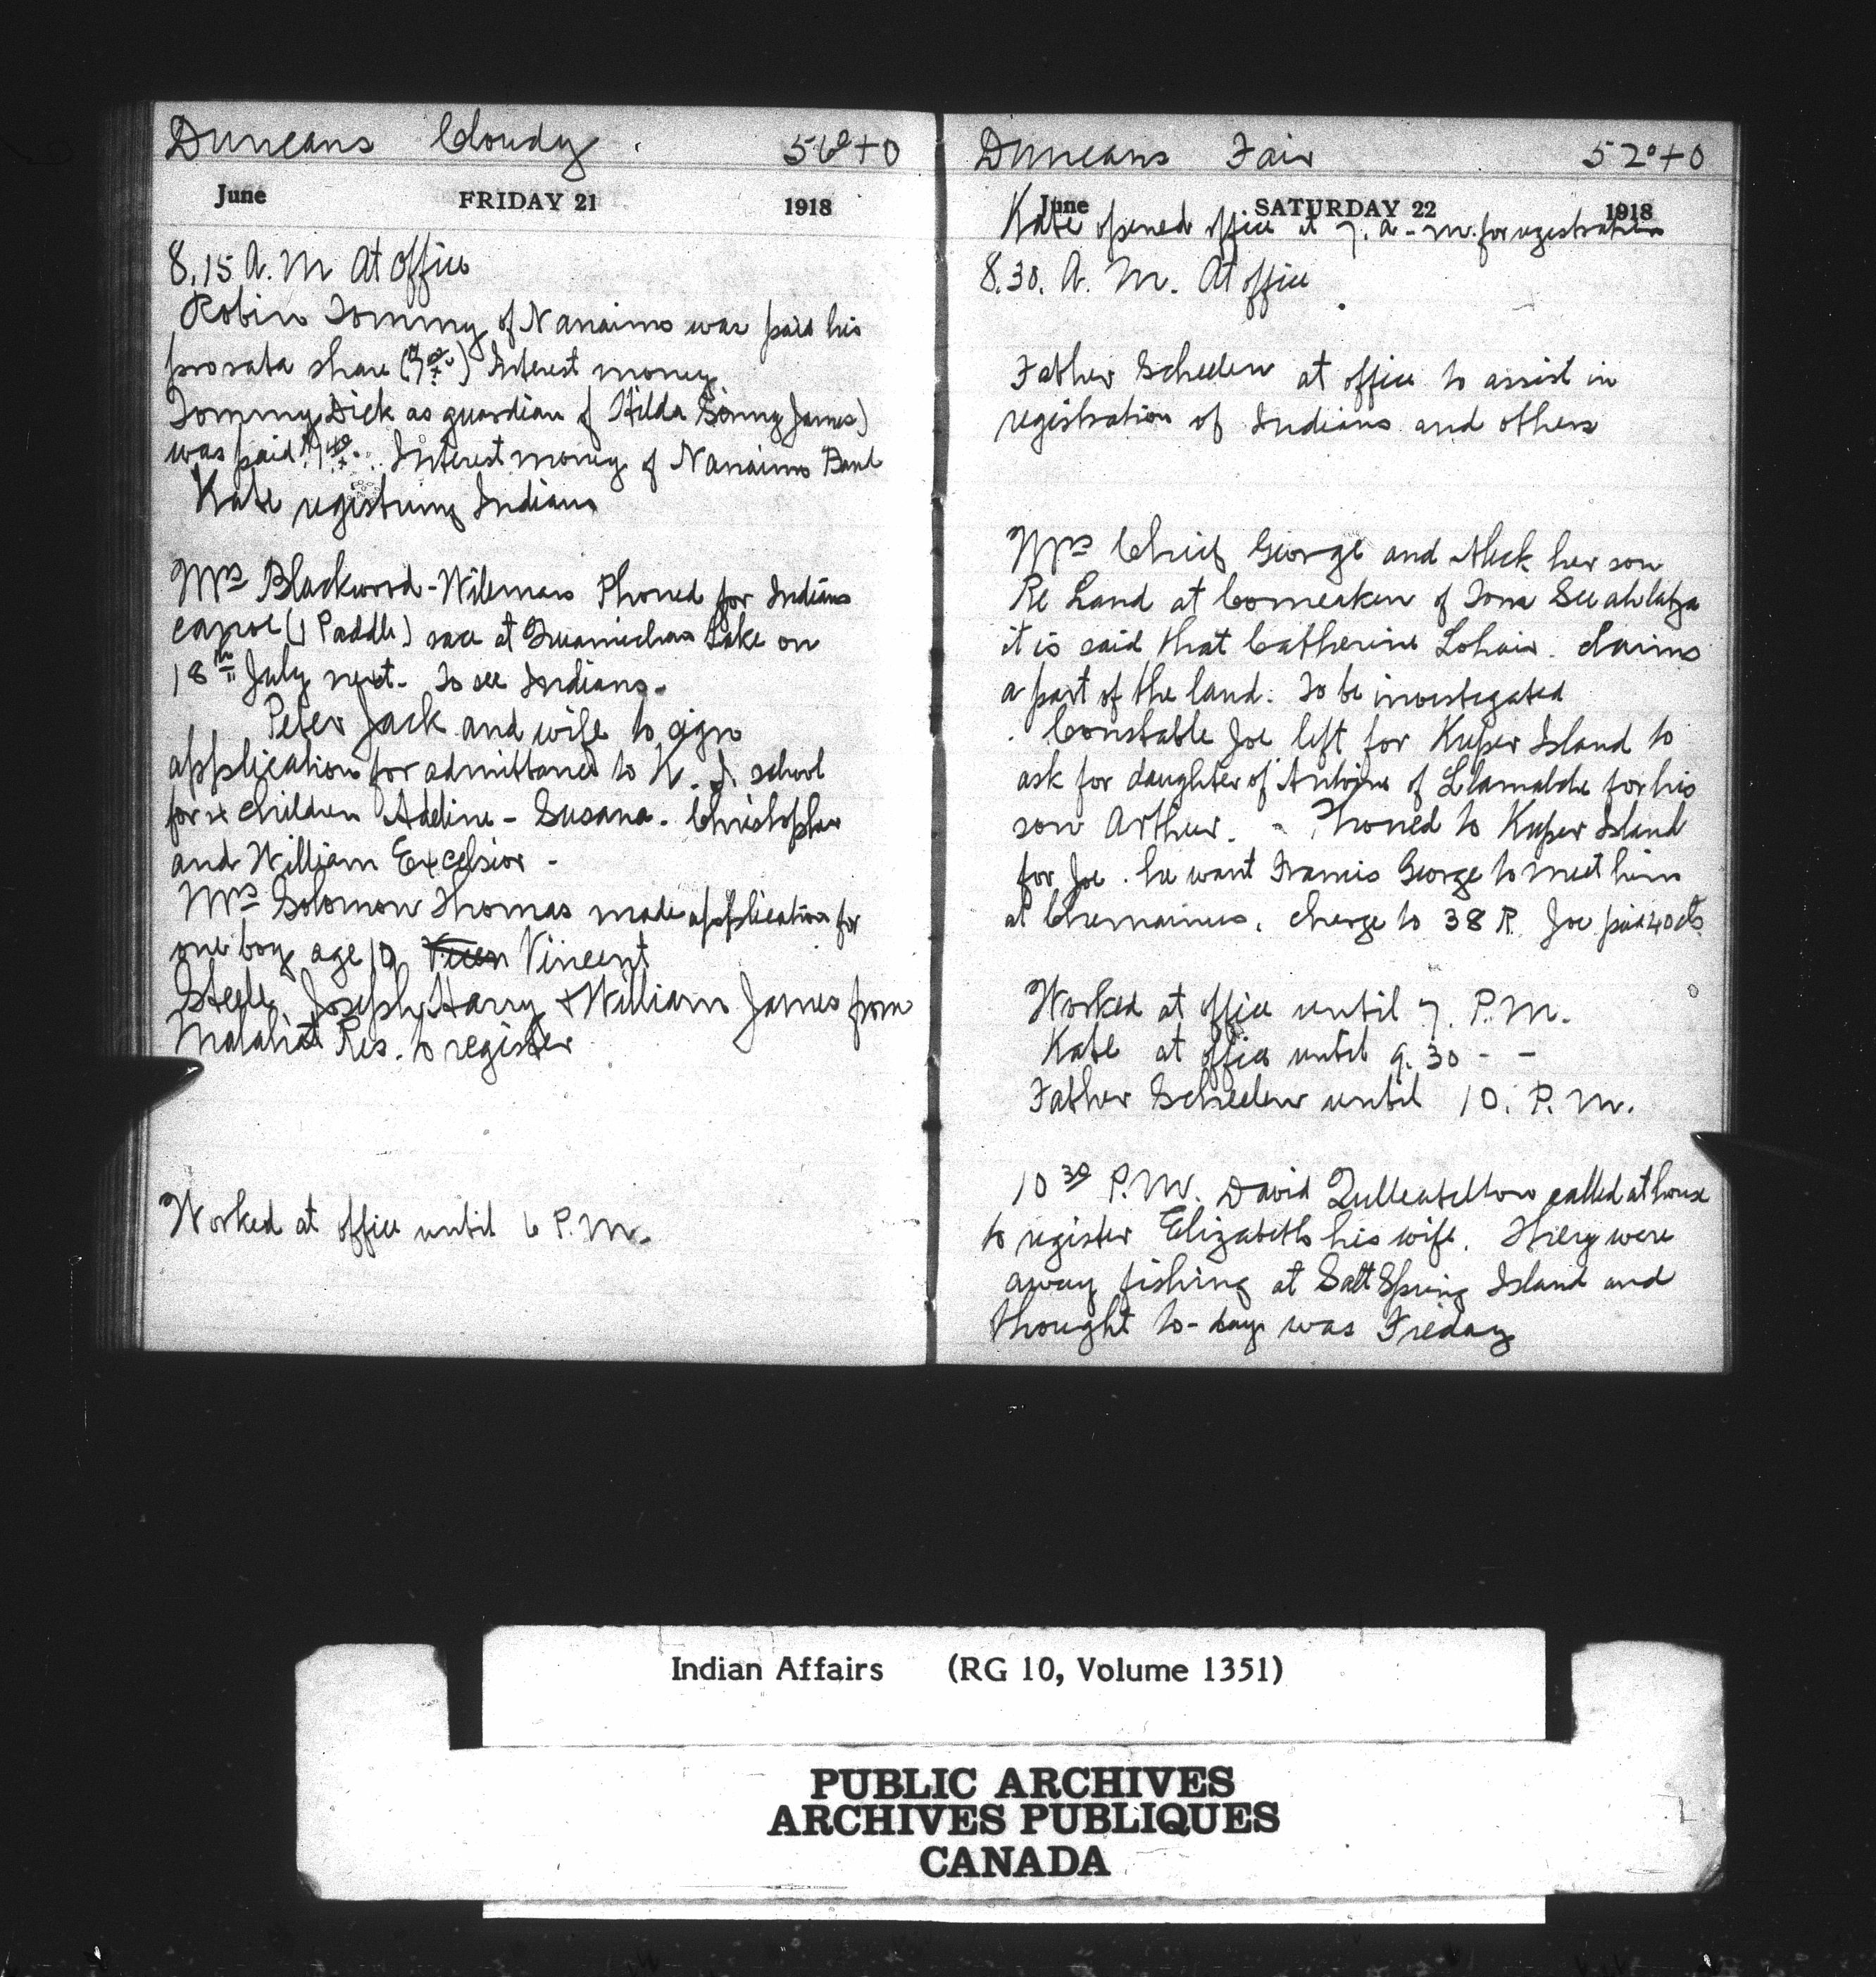 Duncans Cloudy. 56°+0
June FRIDAY 21 1918
8.15 A.M At office
Robin Tommy of Nanaimo was paid his
prorata share Interest money
Tommy Dick as guardian of Hilda Jimmy James)
was paid Interest money of Nanaimo Band
Kate registering Indians
Mrs Blackwood-Wileman Phoned for Indians
canoe (1 Paddle) race at Quamichan Lake on
18th July next. To see Indians.
Peter Jack and wife to sign
application for admittance to K. I. school
for children Adeline - Susana. Christopher
and William Excelsior -
Mrs Solomon Thomas made application for
one boy age 10 Vincent
Steele, Joseph, Harry & William James from
Malahat Res. to register
Worked at office until 6 P.M.
Duncans Fair 52°+0
June SATURDAY 22 1918
Kate opened office at 7. a - m. for registration
8.30. A. M. At office
Father Scheelen at office to assist in
registration of Indians and others
Mrs Chief George and Aleck her son
Re Land at Comeaken of Tom
it is said that Catherine Lohair. claims
a part of the land. To be investigated
Constable Joe left for Kuper Island to
ask for daughter of Antoine of Llamalche for his
son Arthur. - Phoned to Kuper Island
for Joe. he want Francis George to meet him
at Chemainus. charge to 38 R Joe paid 40 cts
Worked at office until 7. P.M.
Kate at office until 9.30 - -
Father Scheelen until 10. P.M.
10 30 P.M. David called at house
to register Elizabeth his wife. They were
away fishing at Salt Spring Island and
thought to-day was Friday
Indian Affairs (RG 10, Volume 1351)
PUBLIC ARCHIVES
ARCHIVES PUBLIQUES
CANADA